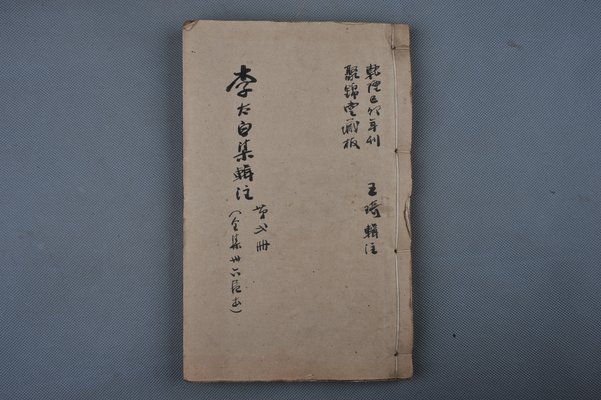 乾隆己卯年刊 王琦輯注
聚錦堂藏板
李太白集輯注
冊
(全集卅六